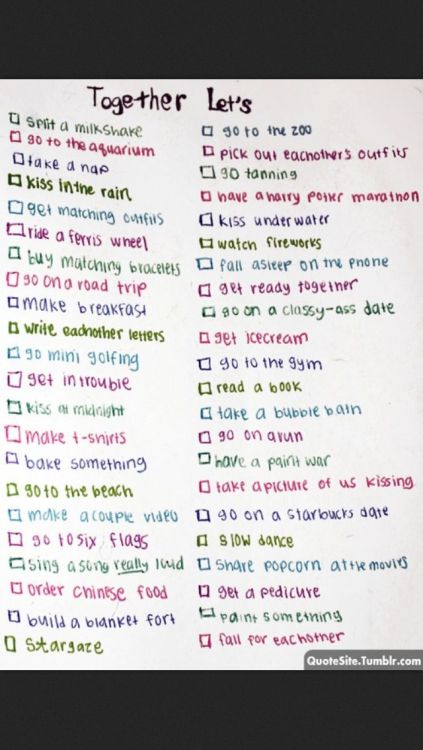 Together Let's
split a milkshake
go to the aquarium
take a nap
kiss in the rain
get matching outfits
ride a ferris wheel
buy matching bracelets
go on a road trip
make breakfast
write eachother letters
go mini golfing
get in trouble
kiss at midnight
make t-shirts
bake something
go to the beach
make a couple video
go to six flags
sing a song really loud
order chinese food
build a blanket fort
stargaze
go to the zoo
pick out eachother's outfits
go tanning
have a harry potter marathon
kiss underwater
watch fireworks
fall asleep on the phone
get ready together
go on a classy-ass date
get icecream
go to the gym
read a book
take a bubble bath
go on a run
have a paint war
take a picture of us kissing
go on a starbucks date
slow dance
share popcorn at the movies
get a pedicure
paint something
fall for eachother
QuoteSite.Tumblr.com